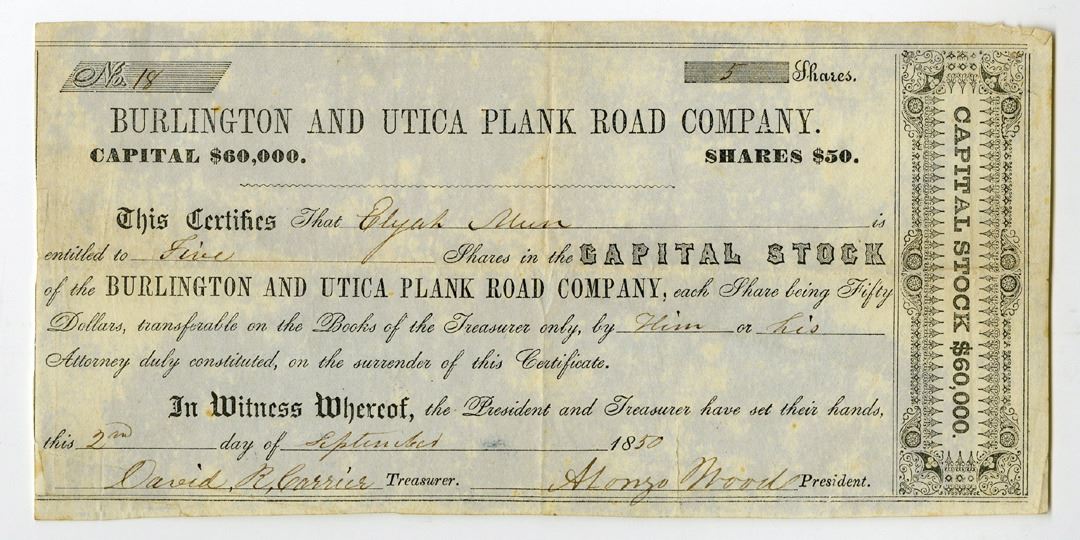 No. 18
5 Shares.
BURLINGTON AND UTICA PLANK ROAD COMPANY.
CAPITAL $60,000. SHARES $50.
This Certifies That Elijah Munn is
entitled to Five Shares in the CAPITAL STOCK
of the BURLINGTON AND UTICA PLANK ROAD COMPANY, each Share being Fifty
Dollars, transferable on the Books of the Treasurer only, by Him or his
Attorney duly constituted, on the surrender of this Certificate.
In Witness Whereof, the President and Treasurer have set their hands,
this 2nd day of September 1850
David R, Carrier Treasurer. Alonzo Wood President.
CAPITAL STOCK $60,000.